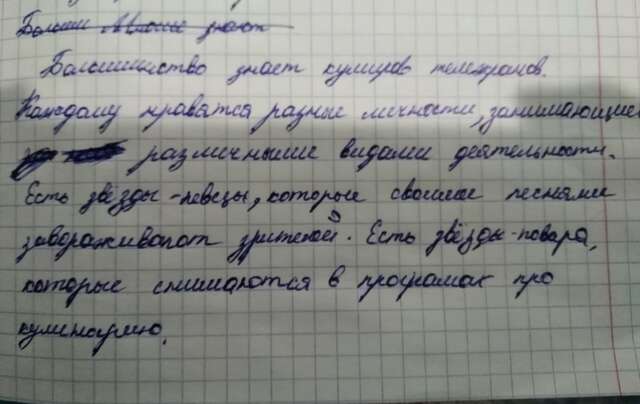 Большинство знает кумиров телеэкранов.
Каждому нравятся разные личности, занимающиес
различными видами деятельности.
Есть звёзды-певцы, которые своими песнями
завораживают зрителей. Есть звёзды-повара,
которые снимаются в програмах про
кулинарию.